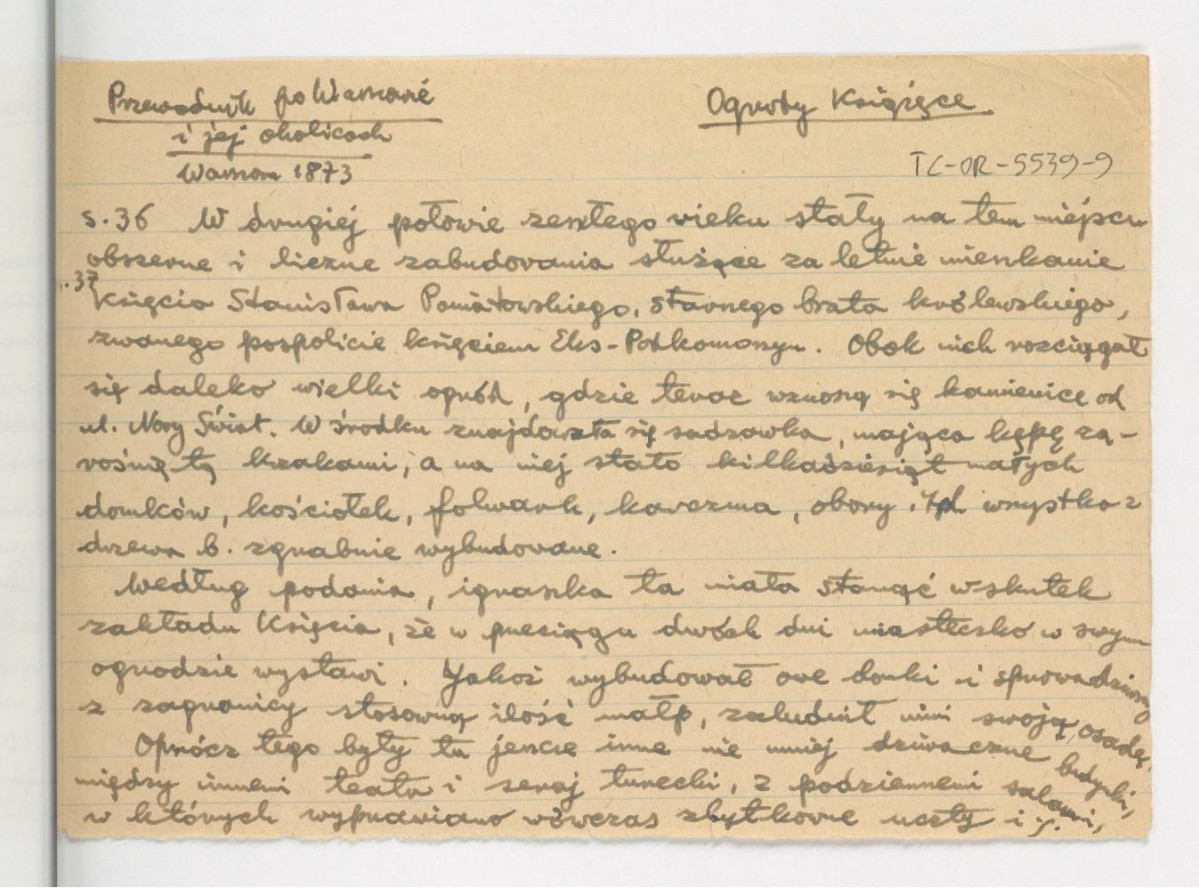 Przewodnik po Warszawie
i jej okolicach
Warszawa 1873
Ogrody Książęce
TC-OR-5539-9
s.36 W drugiej połowie zeszłego wieku stały na tem miejscu
obszerne i liczne zabudowania służące za letnie mieszkanie
s.37 Księcia Stanisława Poniatowskiego, sławnego brata królewskiego,
zwanego pospolicie księciem Eks-Podkomorzym. Obok nich rozciągał
się daleko wielki ogród, gdzie teraz wznoszą się kamienice od
ul. Nowy Świat. W środku znajdowała się sadzawka, mająca kępę za-
rośniętą krzakami, a na niej stało kilkadziesiąt małych
domków, kościołek, folwark, karczma, obory wszystko z
drzewa b. zgrabnie wybudowane.
Według podania, igraszka ta miała stanąć wskutek
zakładu Księcia, że w przeciągu dwóch dni miasteczko w swym
ogrodzie wystawi. Jakoż wybudował owe domki i sprowadziwszy
z zagranicy stosowną ilość małp, zaludnił nimi swoją osadę.
Oprócz tego były tu jeszcze inne nie mniej dziwaczne budynki,
między innemi teatr i seraj turecki, z podziemnemi salami,
w których wyprawiano wówczas zbytkowne uczty i